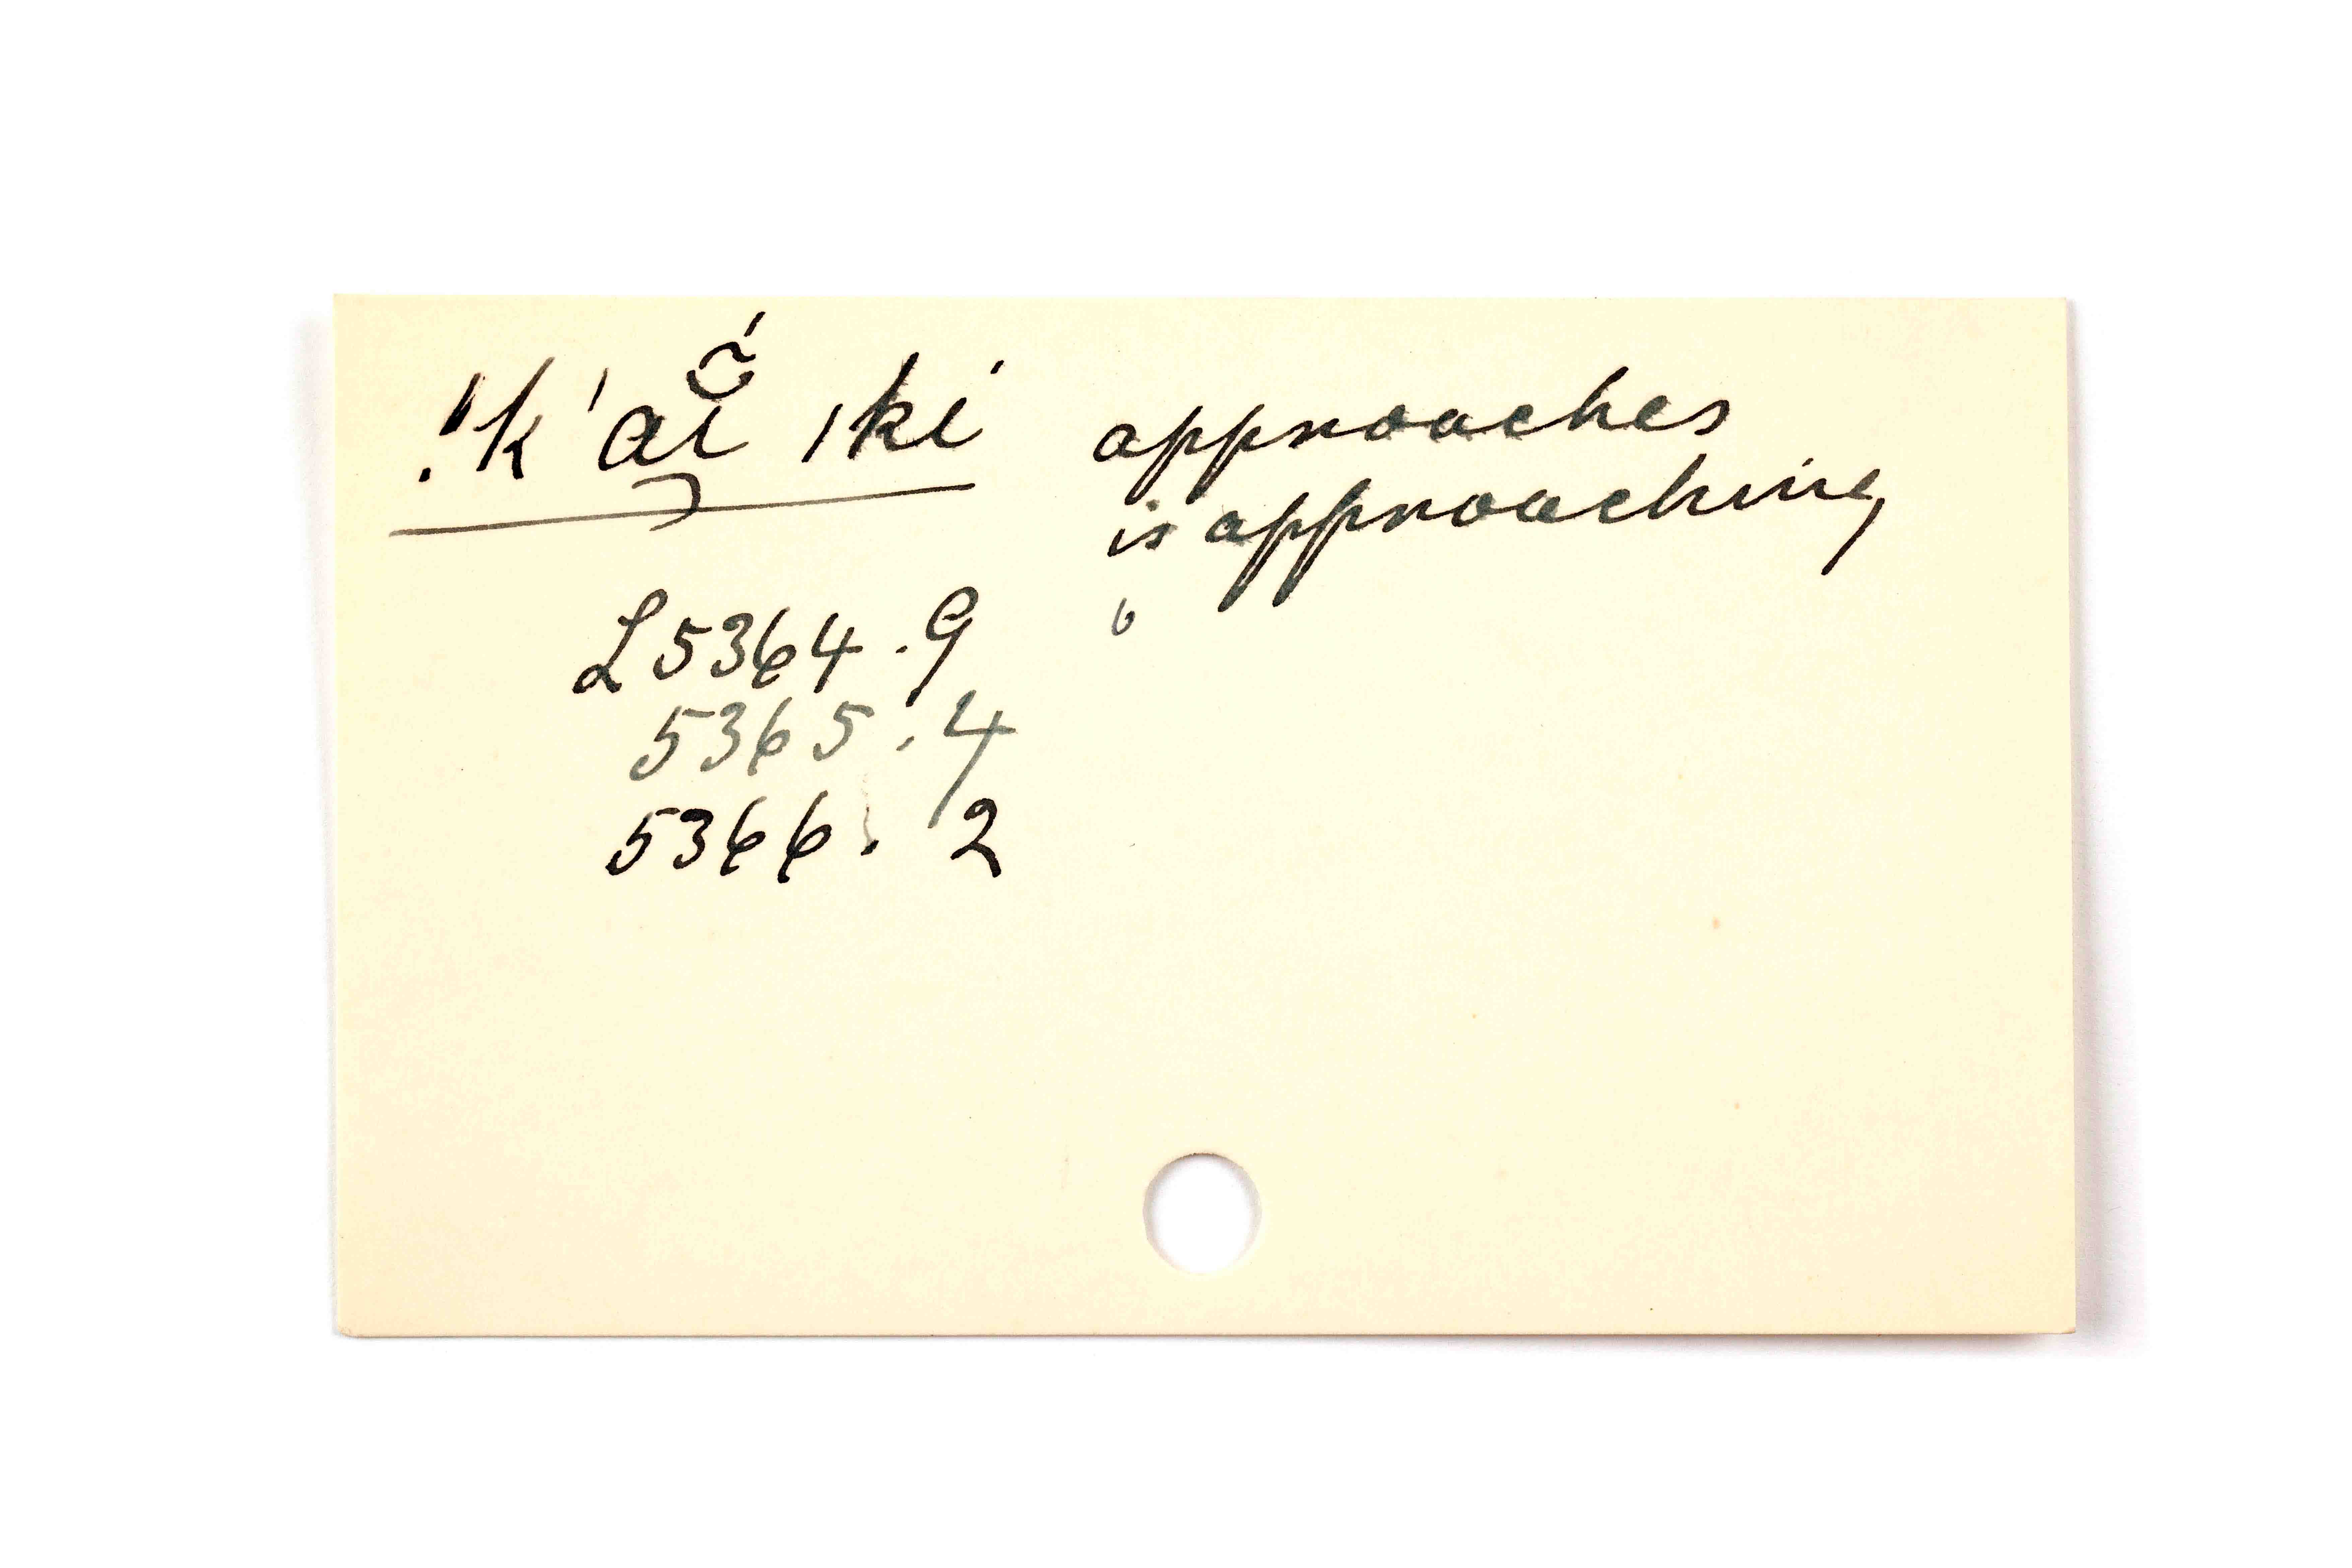 !k'aĩ̆́ ıki approaches
is approaching
L5364.9
5365.4
5366.2